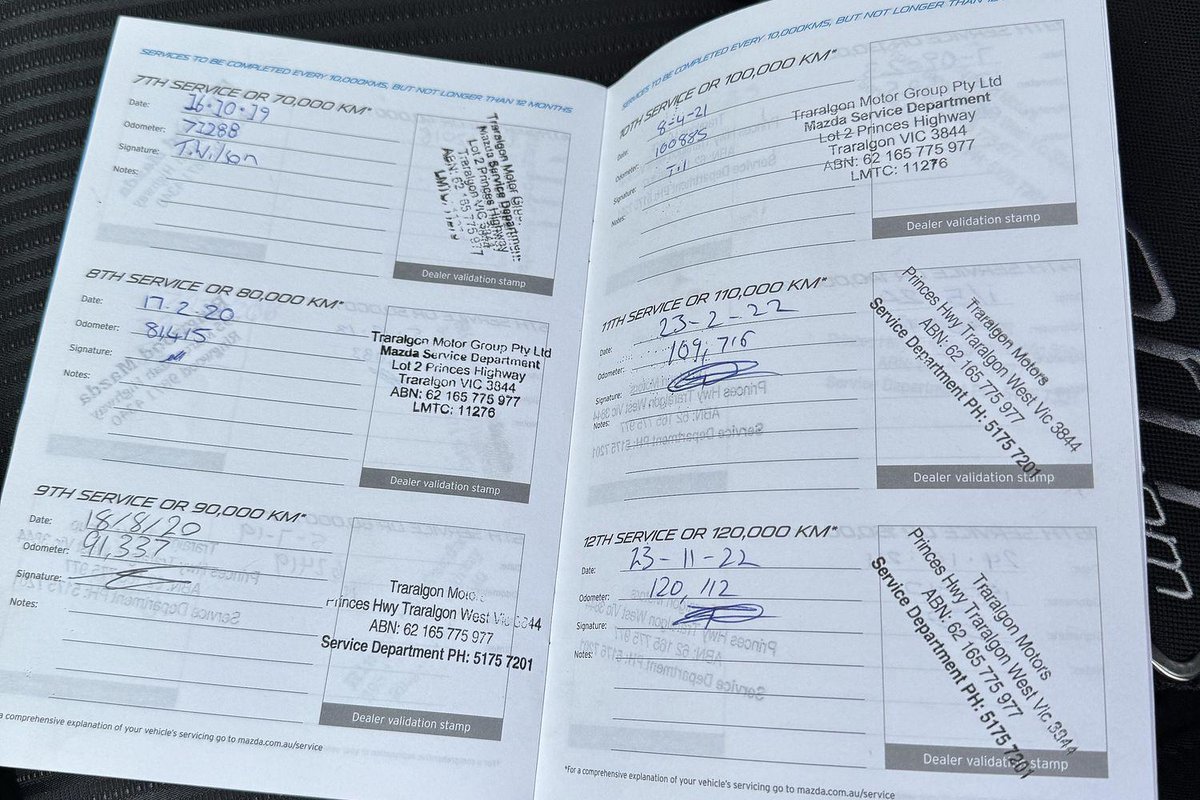 SERVICES TO BE COMPLETED EVERY 10,000KMS, BUT NOT LONGER THAN 12 MONTHS
7TH SERVICE OR 70,000 KM*
Date: 16.10.19
Odometer: 71288
Signature: T.Wilson
Notes:
Traralgon Motor
Mazda Service Department
Lot 2 Princes Highway
Traralgon VIC 3844
ABN: 62 165 775 977
Dealer validation stamp
8TH SERVICE OR 80,000 KM*
Date: 17.2.20
Odometer: 81415
Signature:
Notes:
Traralgon Motor Group Pty Ltd
Mazda Service Department
Lot 2 Princes Highway
Traralgon VIC 3844
ABN: 62 165 775 977
LMTC: 11276
Dealer validation stamp
9TH SERVICE OR 90,000 KM*
Date: 18/8/20
Odometer: 91,337
Signature:
Notes:
Traralgon
Princes Hwy Traralgon West Vic 3844
ABN: 62 165 775 977
Service Department PH: 5175 7201
Dealer validation stamp
a comprehensive explanation of your vehicle's servicing go to mazda.com.au/service
SERVICES TO BE COMPLETED EVERY 10,000KMS, BUT NOT LONGER THAN 12
10TH SERVICE OR 100,000 KM*
Date: 8-4-21
Odometer: 100885
Signature:
Notes:
Traralgon Motor Group Pty Ltd
Mazda Service Department
Lot 2 Princes Highway
Traralgon VIC 3844
ABN: 62 165 775 977
LMTC: 11276
Dealer validation stamp
11TH SERVICE OR 110,000 KM*
Date: 23-2-22
Odometer: 109,716
Signature:
Notes:
Traralgon Motors
Princes Hwy Traralgon West Vic 3844
ABN: 62 165 775 977
Service Department PH: 5175 7201
Dealer validation stamp
12TH SERVICE OR 120,000 KM*
Date: 23-11-22
Odometer: 120,112
Signature:
Notes:
Traralgon Motors
Princes Hwy Traralgon West Vic 3844
ABN: 62 165 775 977
Service Department PH: 5175 7201
Dealer validation stamp
*For a comprehensive explanation of your vehicle's servicing go to mazda.com.au/service